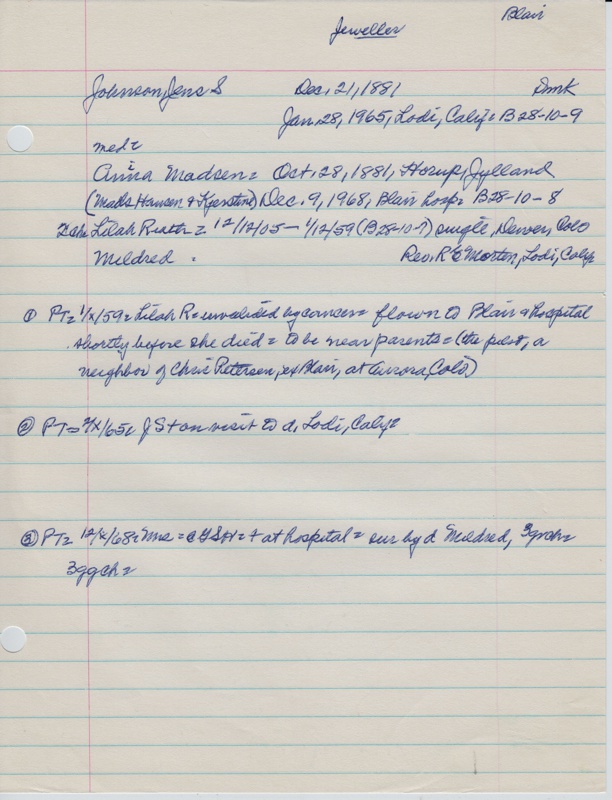 Blair
Jeweller
Johnson, Jens S Dec. 21, 1881 Dmk
Jan. 28, 1965, Lodi, Calif= B28-10-9
md=
Anna Madsen= Oct. 28, 1881, Horup, Jylland
(Mads Hansen & Kjerstine) Dec. 9, 1968, Blair hosp= B28-10-8
Lilah Ruth= 12/12/05 - 1/12/59 (B28-10-7) single, Denver, Colo
Mildred = Rev. R E Morton, Lodi, Calif=
① PT= 1/x/59= Lilah R= invalided by cancer= flown to Blair & hospital
shortly before she died= to be near parents= (the pilot, a
neighbor of Chris Petersen, ex Blair, at Aurora, Colo)
② PT= 2/x/65= J S + on visit to d, Lodi, Calif=
③ PT= 12/x/68= Mrs = + at hospital= sur by d Mildred, 3grch=
3ggch=